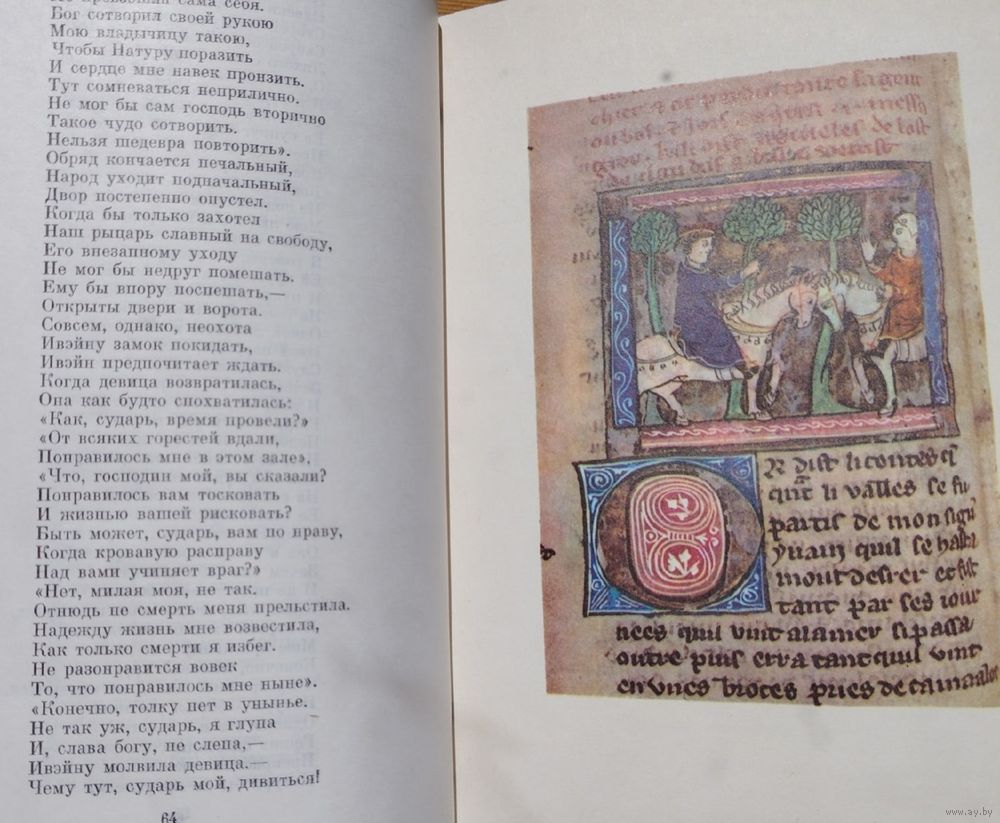 сама себя.
Бог сотворил своей рукою
Мою владычицу такою,
Чтобы Натуру поразить
И сердце мне навек пронзить.
Тут сомневаться неприлично.
Не мог бы сам господь вторично
Такое чудо сотворить.
Нельзя шедевра повторить».
Обряд кончается печальный,
Народ уходит подначальный,
Двор постепенно опустел.
Когда бы только захотел
Наш рыцарь славный на свободу,
Его внезапному уходу
Не мог бы недруг помешать.
Ему бы впору поспешать,—
Открыты двери и ворота.
Совсем, однако, неохота
Ивэйну замок покидать,
Ивэйн предпочитает ждать.
Когда девица возвратилась,
Она как будто спохватилась:
«Как, сударь, время провели?»
«От всяких горестей вдали,
Понравилось мне в этом зале».
«Что, господин мой, вы сказали?
Понравилось вам тосковать
И жизнью вашей рисковать?
Быть может, сударь, вам по нраву,
Когда кровавую расправу
Над вами учиняет враг?»
«Нет, милая моя, не так.
Отнюдь не смерть меня прельстила.
Надежду жизнь мне возвестила,
Как только смерти я избег.
Не разонравится вовек
То, что понравилось мне ныне».
«Конечно, толку нет в унынье.
Не так уж, сударь, я глупа
И, слава богу, не слепа,—
Ивэйну молвила девица.—
Чему тут, сударь мой, дивиться!
64
dist li contes
quant li valles se fu
partis de mon signor
yuain quil se
mont et fist
tant par ses iour
nees quil vint a la mer si passa
outre puis erra tant quil vint
www.ay.by